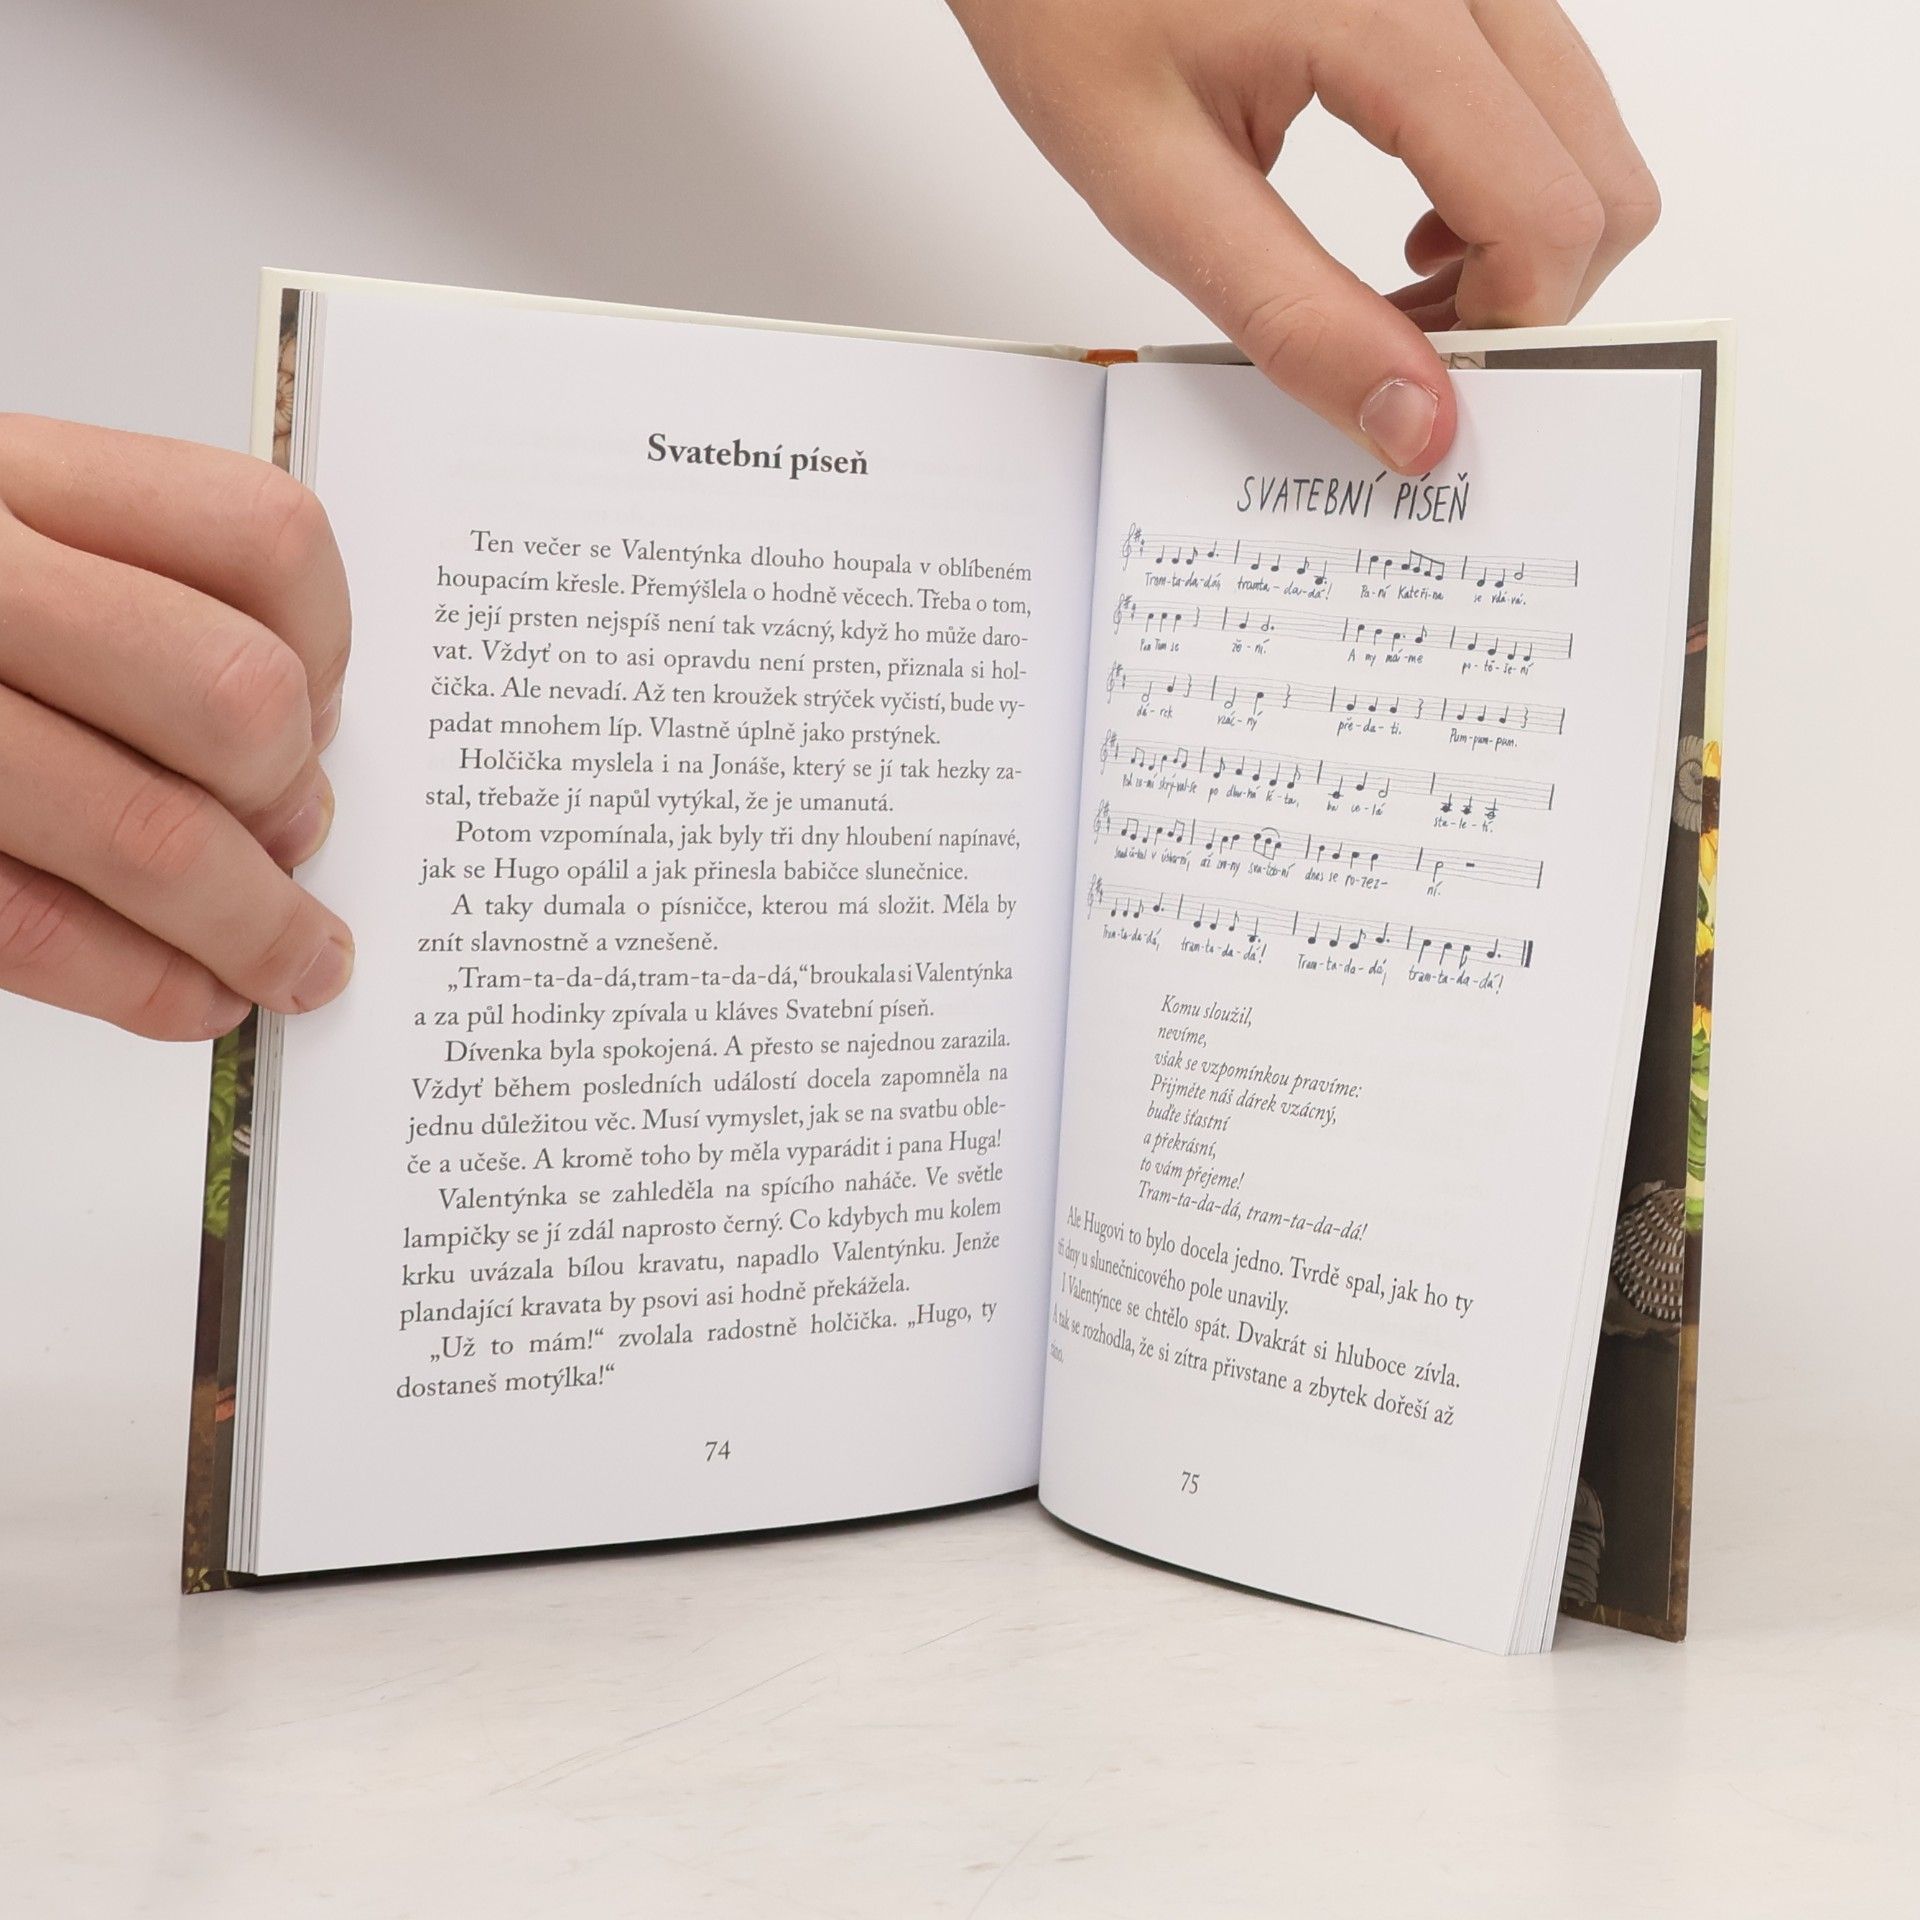 Svatební píseň
Ten večer se Valentýnka dlouho houpala v oblíbeném
houpacím křesle. Přemýšlela o hodně věcech. Třeba o tom,
že její prsten nejspíš není tak vzácný, když ho může daro-
vat. Vždyť on to asi opravdu není prsten, přiznala si hol-
čička. Ale nevadí. Až ten kroužek strýček vyčistí, bude vy-
padat mnohem líp. Vlastně úplně jako prstýnek.
Holčička myslela i na Jonáše, který se jí tak hezky za-
stal, třebaže jí napůl vytýkal, že je umanutá.
Potom vzpomínala, jak byly tři dny hloubení napínavé,
jak se Hugo opálil a jak přinesla babičce slunečnice.
A taky dumala o písničce, kterou má složit. Měla by
znít slavnostně a vznešeně.
„Tram-ta-da-dá, tram-ta-da-dá,“ broukala si Valentýnka
a za půl hodinky zpívala u kláves Svatební píseň.
Dívenka byla spokojená. A přesto se najednou zarazila.
Vždyť během posledních událostí docela zapomněla na
jednu důležitou věc. Musí vymyslet, jak se na svatbu oble-
če a učeše. A kromě toho by měla vyparádit i pana Huga!
Valentýnka se zahleděla na spícího naháče. Ve světle
lampičky se jí zdál naprosto černý. Co kdybych mu kolem
krku uvázala bílou kravatu, napadlo Valentýnku. Jenže
plandající kravata by psovi asi hodně překážela.
„Už to mám!“ zvolala radostně holčička. „Hugo, ty
dostaneš motýlka!“
74
SVATEBNÍ PÍSEŇ
Tram-ta-da-dá, tramta-da-dá! Pa-ní Kateři-na se vdá-vá.
Pan Tom se že-ní. A my má-me po-tě-še-ní
dá-rek vzác-ný pře-da-ti. Pum-pum-pum.
Pod ze-mí skrýval-se po dlou-há lé-ta, ba ce-lá sta-le-tí.
až zvo-ny sva-teb-ní dnes se ro-zez-ní.
Tram-ta-da-dá, tram-ta-da-dá! Tram-ta-da-dá, tram-ta-da-dá!
Komu sloužil,
nevíme,
však se vzpomínkou pravíme:
Přijměte náš dárek vzácný,
buďte šťastní
a překrásní,
to vám přejeme!
Tram-ta-da-dá, tram-ta-da-dá!
Ale Hugovi to bylo docela jedno. Tvrdě spal, jak ho ty
tři dny u slunečnicového pole unavily.
I Valentýnce se chtělo spát. Dvakrát si hluboce zívla.
A tak se rozhodla, že si zítra přivstane a zbytek dořeší až
ráno.
75